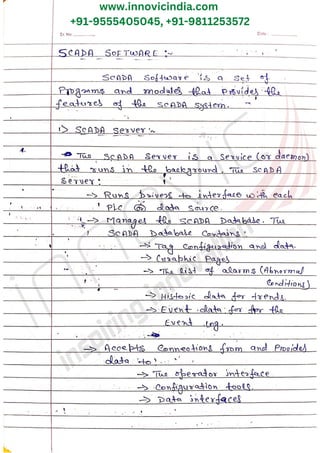 www.innovicindia.com
+91-9555405045, +91-9811253572
Sr. No.
Date
SCADA SOFTWARE :-
SCADA Software is a set of
Programs and modules that Provides the
features of the SCADA System.
1> SCADA Server :-
The SCADA Server is a Service (or daemon)
that runs in the background. The SCADA
Server:
→ Runs Drivers to interface with each
PLC @ data source
→ Manages the SCADA Database. The
SCADA Database Contains:
→ Tag Configuration and data.
→ Graphic Pages
→ The list of alarms (Abnormal
Conditions)
→ Historic data for trends.
→ Event data for for the
Event log.
→ Accepts Connections from and Provides
data to:
→ The operator interface
→ Configuration tools.
→ Data interfaces